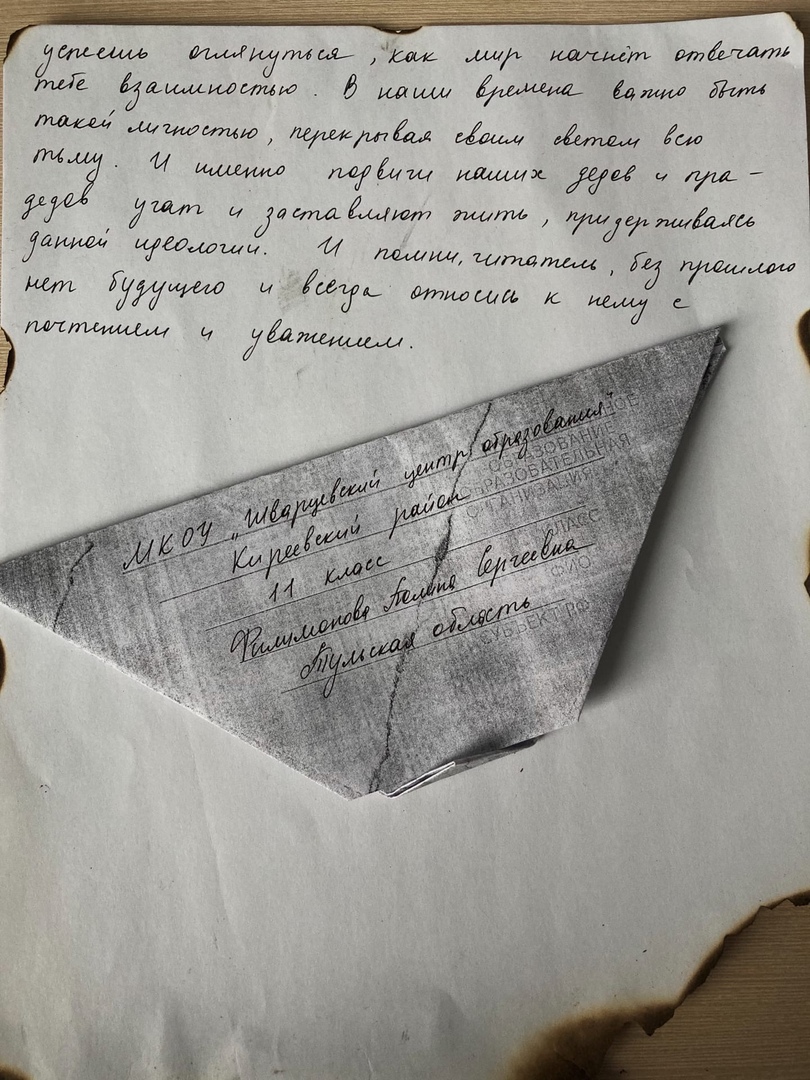 успеешь оглянуться, как мир начнёт отвечать
тебе взаимностью. В наши времена важно быть
такой личностью, перекрывая своим светом всю
тьму. И именно подвиги наших дедов и пра-
дедов учат и заставляют жить, придерживаясь
данной идеологии. И помни, читатель, без прошлого
нет будущего и всегда относись к нему с
почтением и уважением.
МКОУ „Шварцевский центр образования"
ОБРАЗОВАНИЕ
Киреевский район
ОБРАЗОВАТЕЛЬНАЯ
ОРГАНИЗАЦИЯ
11 класс
КЛАСС
Филимонова Галина Сергеевна
ФИО
Тульская область
СУБЪЕКТ РФ